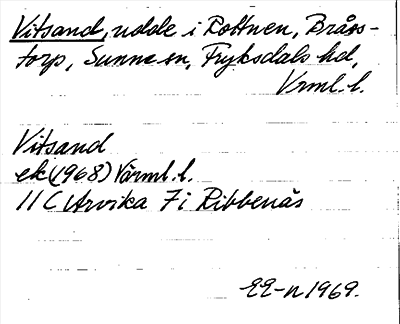 Vitsand, udde i Rottnen, Bråss-
torp, Sunne sn, Fryksdals hd,
Vrml. l.
Vitsand
ek (1968) Värml. l.
11 C Arvika 7 i Ribbenäs
EE-n 1969.